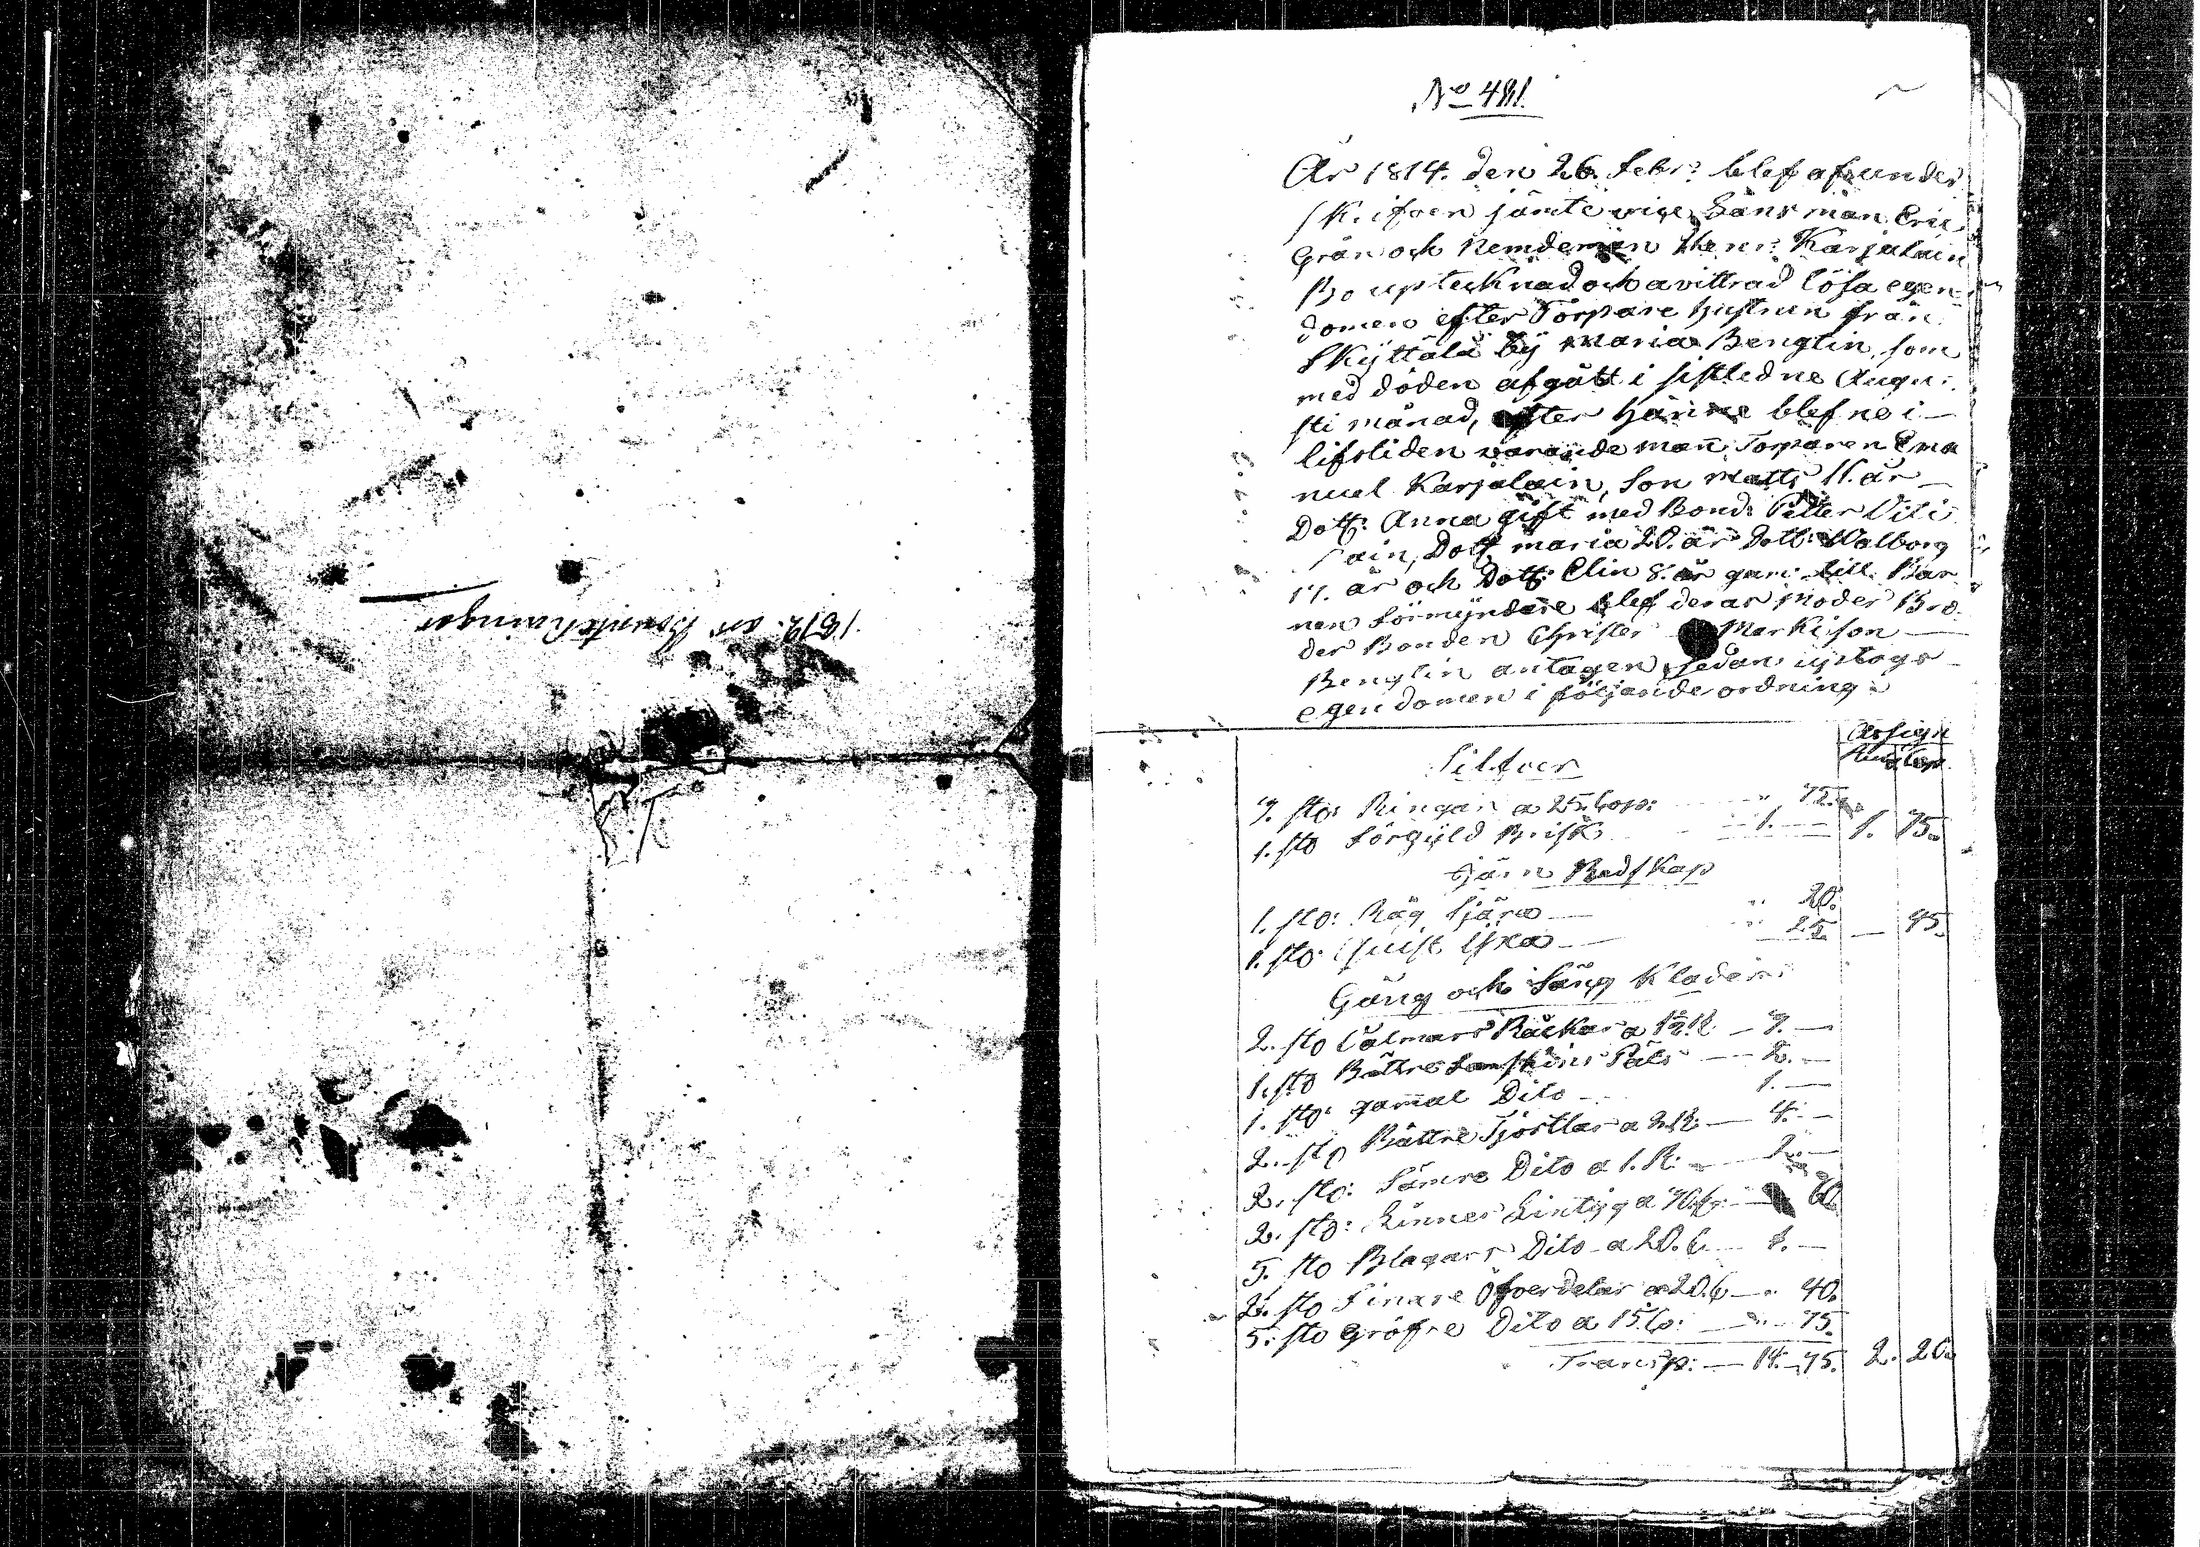 1812. ars Bouptekningar
No 481.
År 1814. den 26. Febr: blef af under
skrifven jämte vice Länsman Eric
Grån och Nemdeman Henr: Karjalain
Bo uptecknad och avittrad lösa egen
domen efter Torpare hustrun från
Skyttälä by Maria Bengtin, som
med döden afgått i sistledne Augu:
sti månad, efter hänne blefne i
lifvstiden varande man Torparen Ema
nuel Karjalain, Son Matts 11. år
Dott: Anna gift med Bond: Petter Viti
ain, Dott maria 20. år Dott: Walborg
17. år och Dott: Elin 8. år gam: till Bar
nen Förmyndare blef deras Moder Bro
der Bonden Christer Markison
Bengtin antagen, sedan uptogs
egendomen i följande ordning:
Assign
Silfver
7. sto: Ringar a 25. Cop: " 75.
1. sto Förgyld Brisk 1. — 1. 75.
Järn Redskap
1. sto: Råg " 20.
1. sto: " 25. — 45.
Gång och Säng Kläder:
2. sto Valmars Räckar a R — 7. —
1. sto Bättre Lamskins Päls — 2. —
1. sto: gam̄al Dito 1. —
2. sto Bättre Tjortlar a 2. R — 4. —
2. sto: Sämre Dito a 1. R: — 2. —
2. sto: Linnes Lintyg a — 60.
5. sto Blagars Dito a 20. C. — 1. —
2. sto Finare Öfverdelar a 20. C — " 40.
5. sto Gröfre Dito a 15. Co: — " 75.
Transp: — 14. 75. 2. 20.